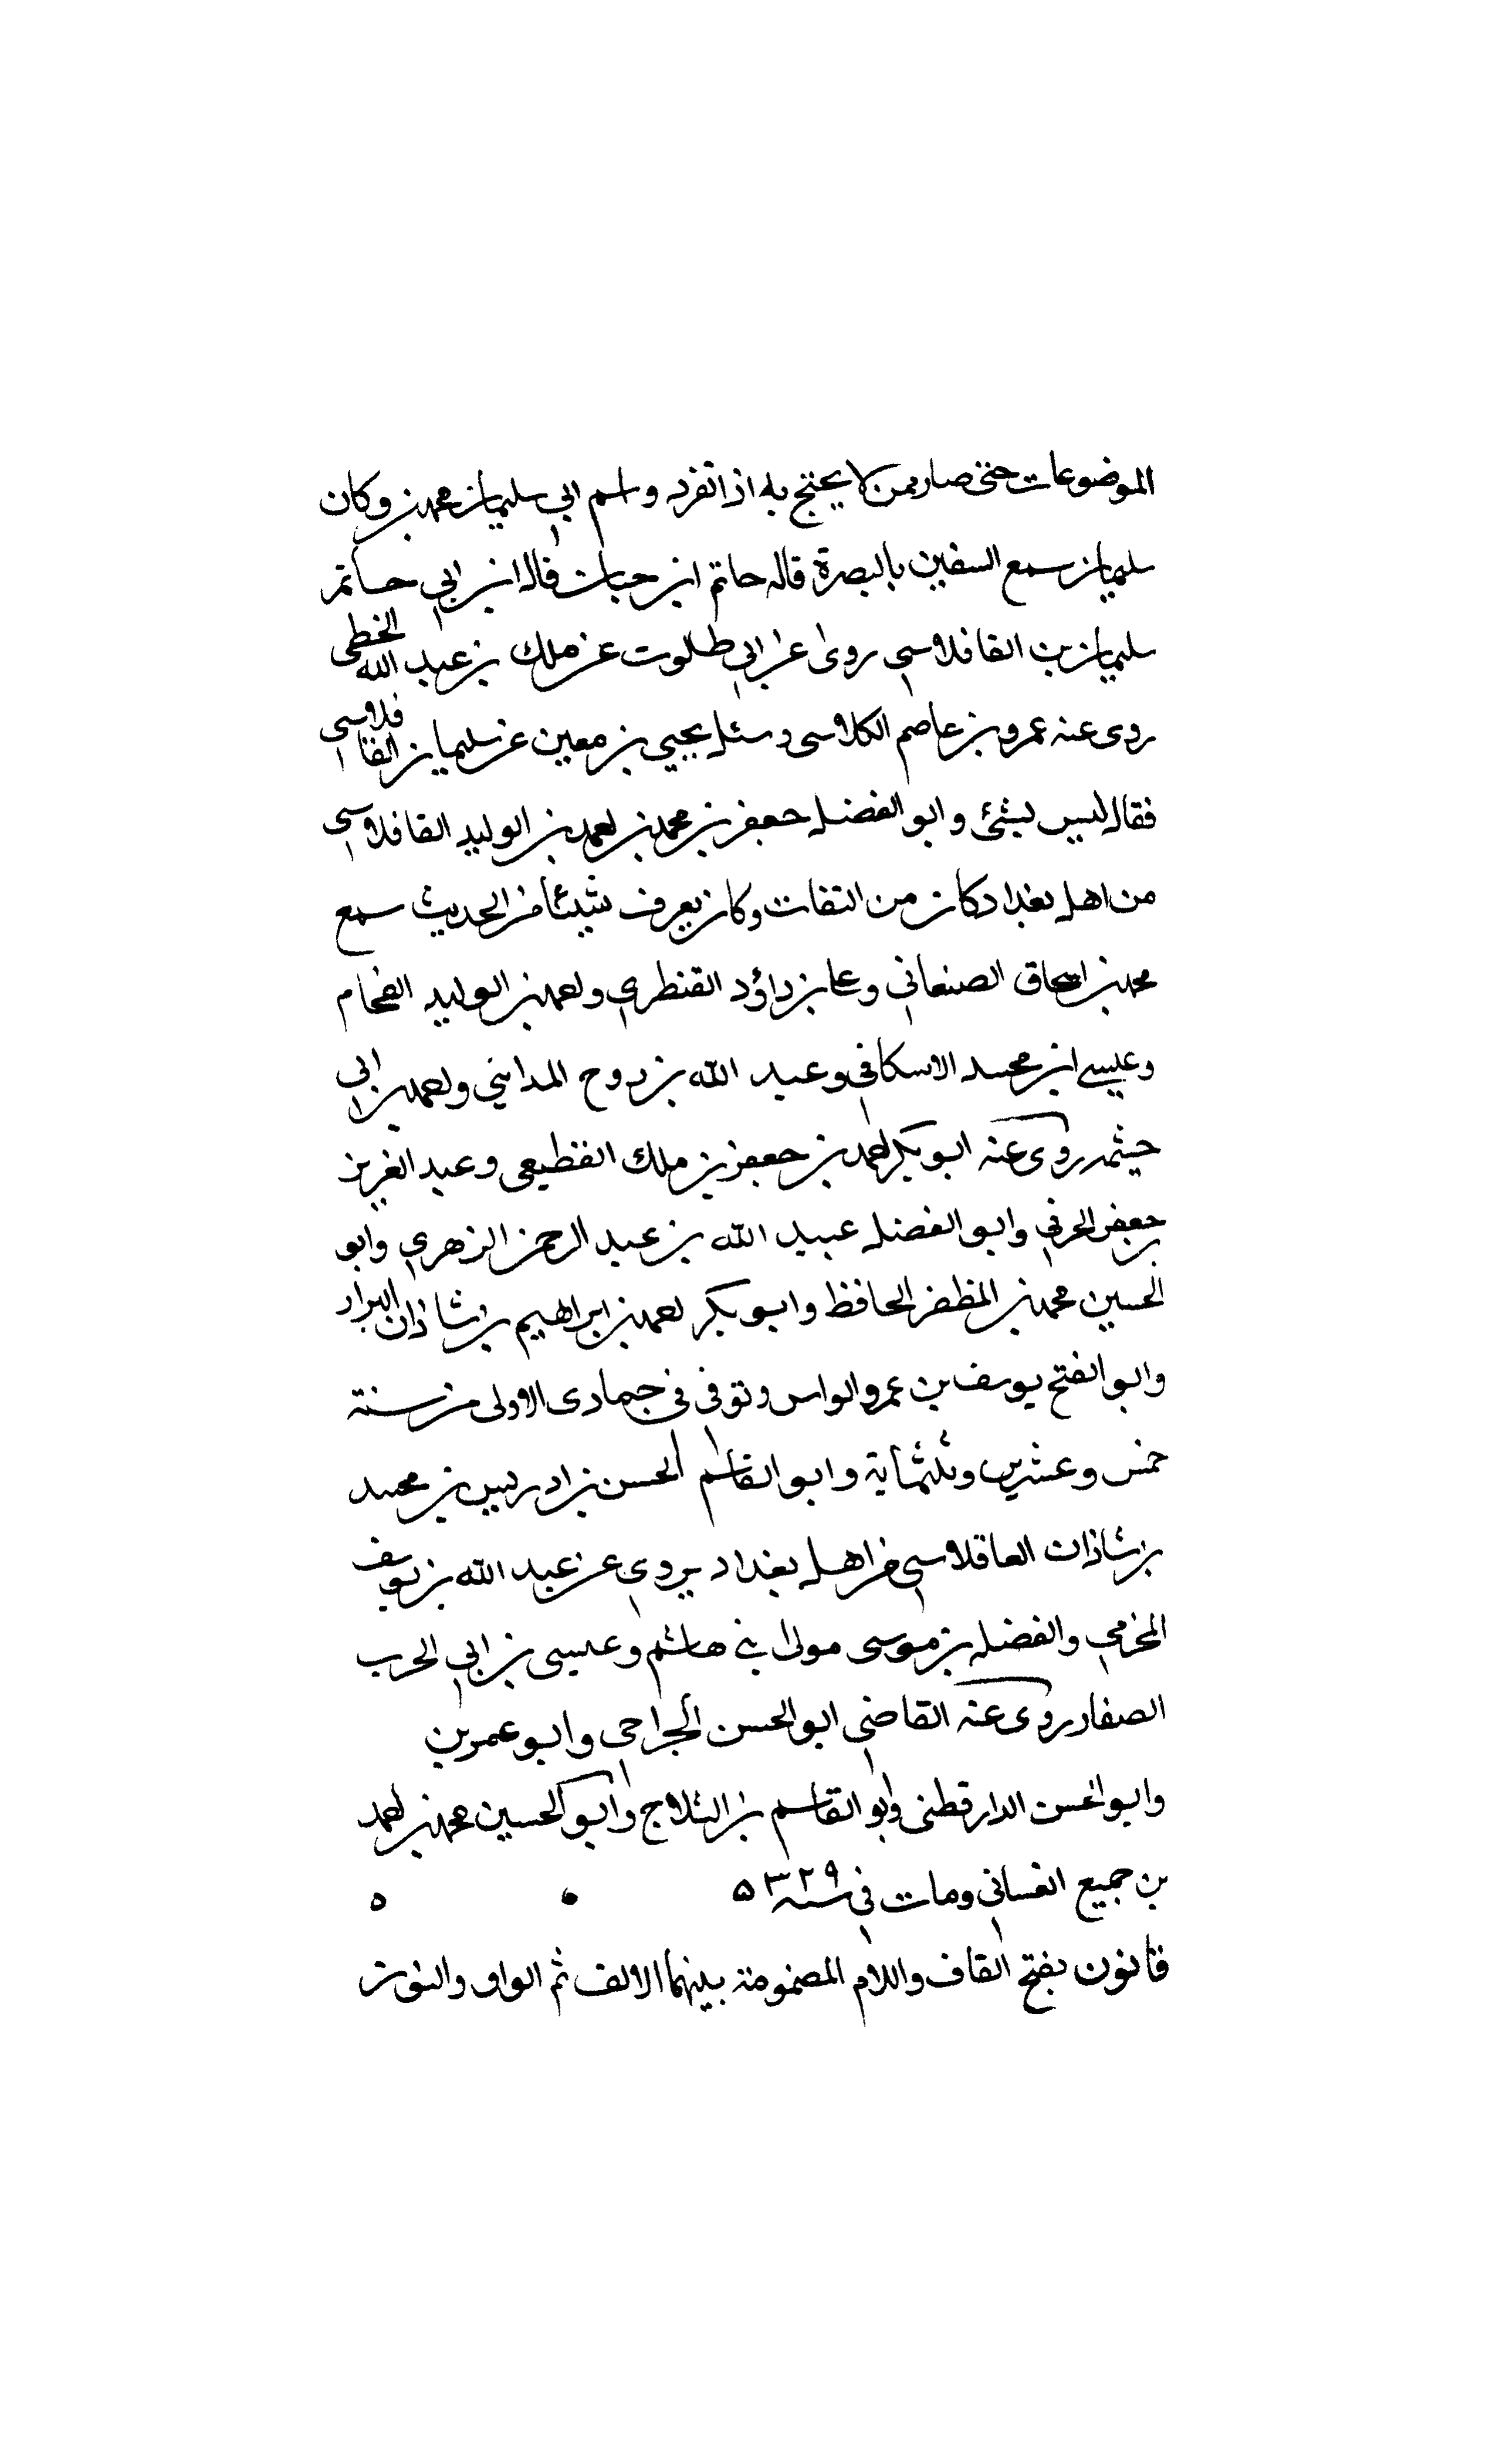 الموضوعات حتى صار ممن لا يحتج به اذا تفرد واسم ابي سليمان محمد بن وكان
سليمان سمع السفين بالبصرة قاله حاتم ابن حبان قال ابن ابي حاتم
سليمان بن القافلاسى روى عن ابي طلوت عن ملك بن عبد الله الخطمى
روى عنه عمرو بن عاصم الكلاسى وسئل يحيى بن معين عن سليمان القافلاسى
فقال ليس بشئ وابو الفضل جعفر بن محمد بن احمد بن الوليد القافلاسى
من اهل بغداد كان من الثقات وكان يعرف شيئا من الحديث سمع
محمد بن اسحاق الصنعاني وعلى بن داؤد القنطري واحمد بن الوليد الفحام
وعيسى ابن محمد الاسكافي وعبد الله بن روح المدايني واحمد بن ابي
خيثمه روى عنه ابو بكر احمد بن جعفر بن ملك القطيعى وعبد العزيز
بن جعفر الحرفي وابو الفضل عبيد الله بن عبد الرحمن الزهري وابو
الحسين محمد بن المظفر الحافظ وابو بكر احمد بن ابراهيم بن شاذان البزار
وابو الفتح يوسف بن عمرو الواس وتوفى فى جمادى الاولى من سنة
خمس وعشرين وثلثماية وابو القاسم الحسن بن ادريس بن محمد
بن شاذان العاقلاسى من اهل بغداد يروي عن عبد الله بن يوسف
المخرمي والفضل بن موسى مولى بنى هاشم وعيسى بن ابي الحرب
الصفار روى عنه القاضي ابو الحسن الجراحي وابو عمر بن
وابو الحسن الدارقطنى وابو القاسم بن الثلاج وابو الحسين محمد بن احمد
بن جميع الغسانى ومات في سنة ٣٢٩ ه
قانون بفتح القاف واللام المضمومة بينهما الالف ثم الواو والنون